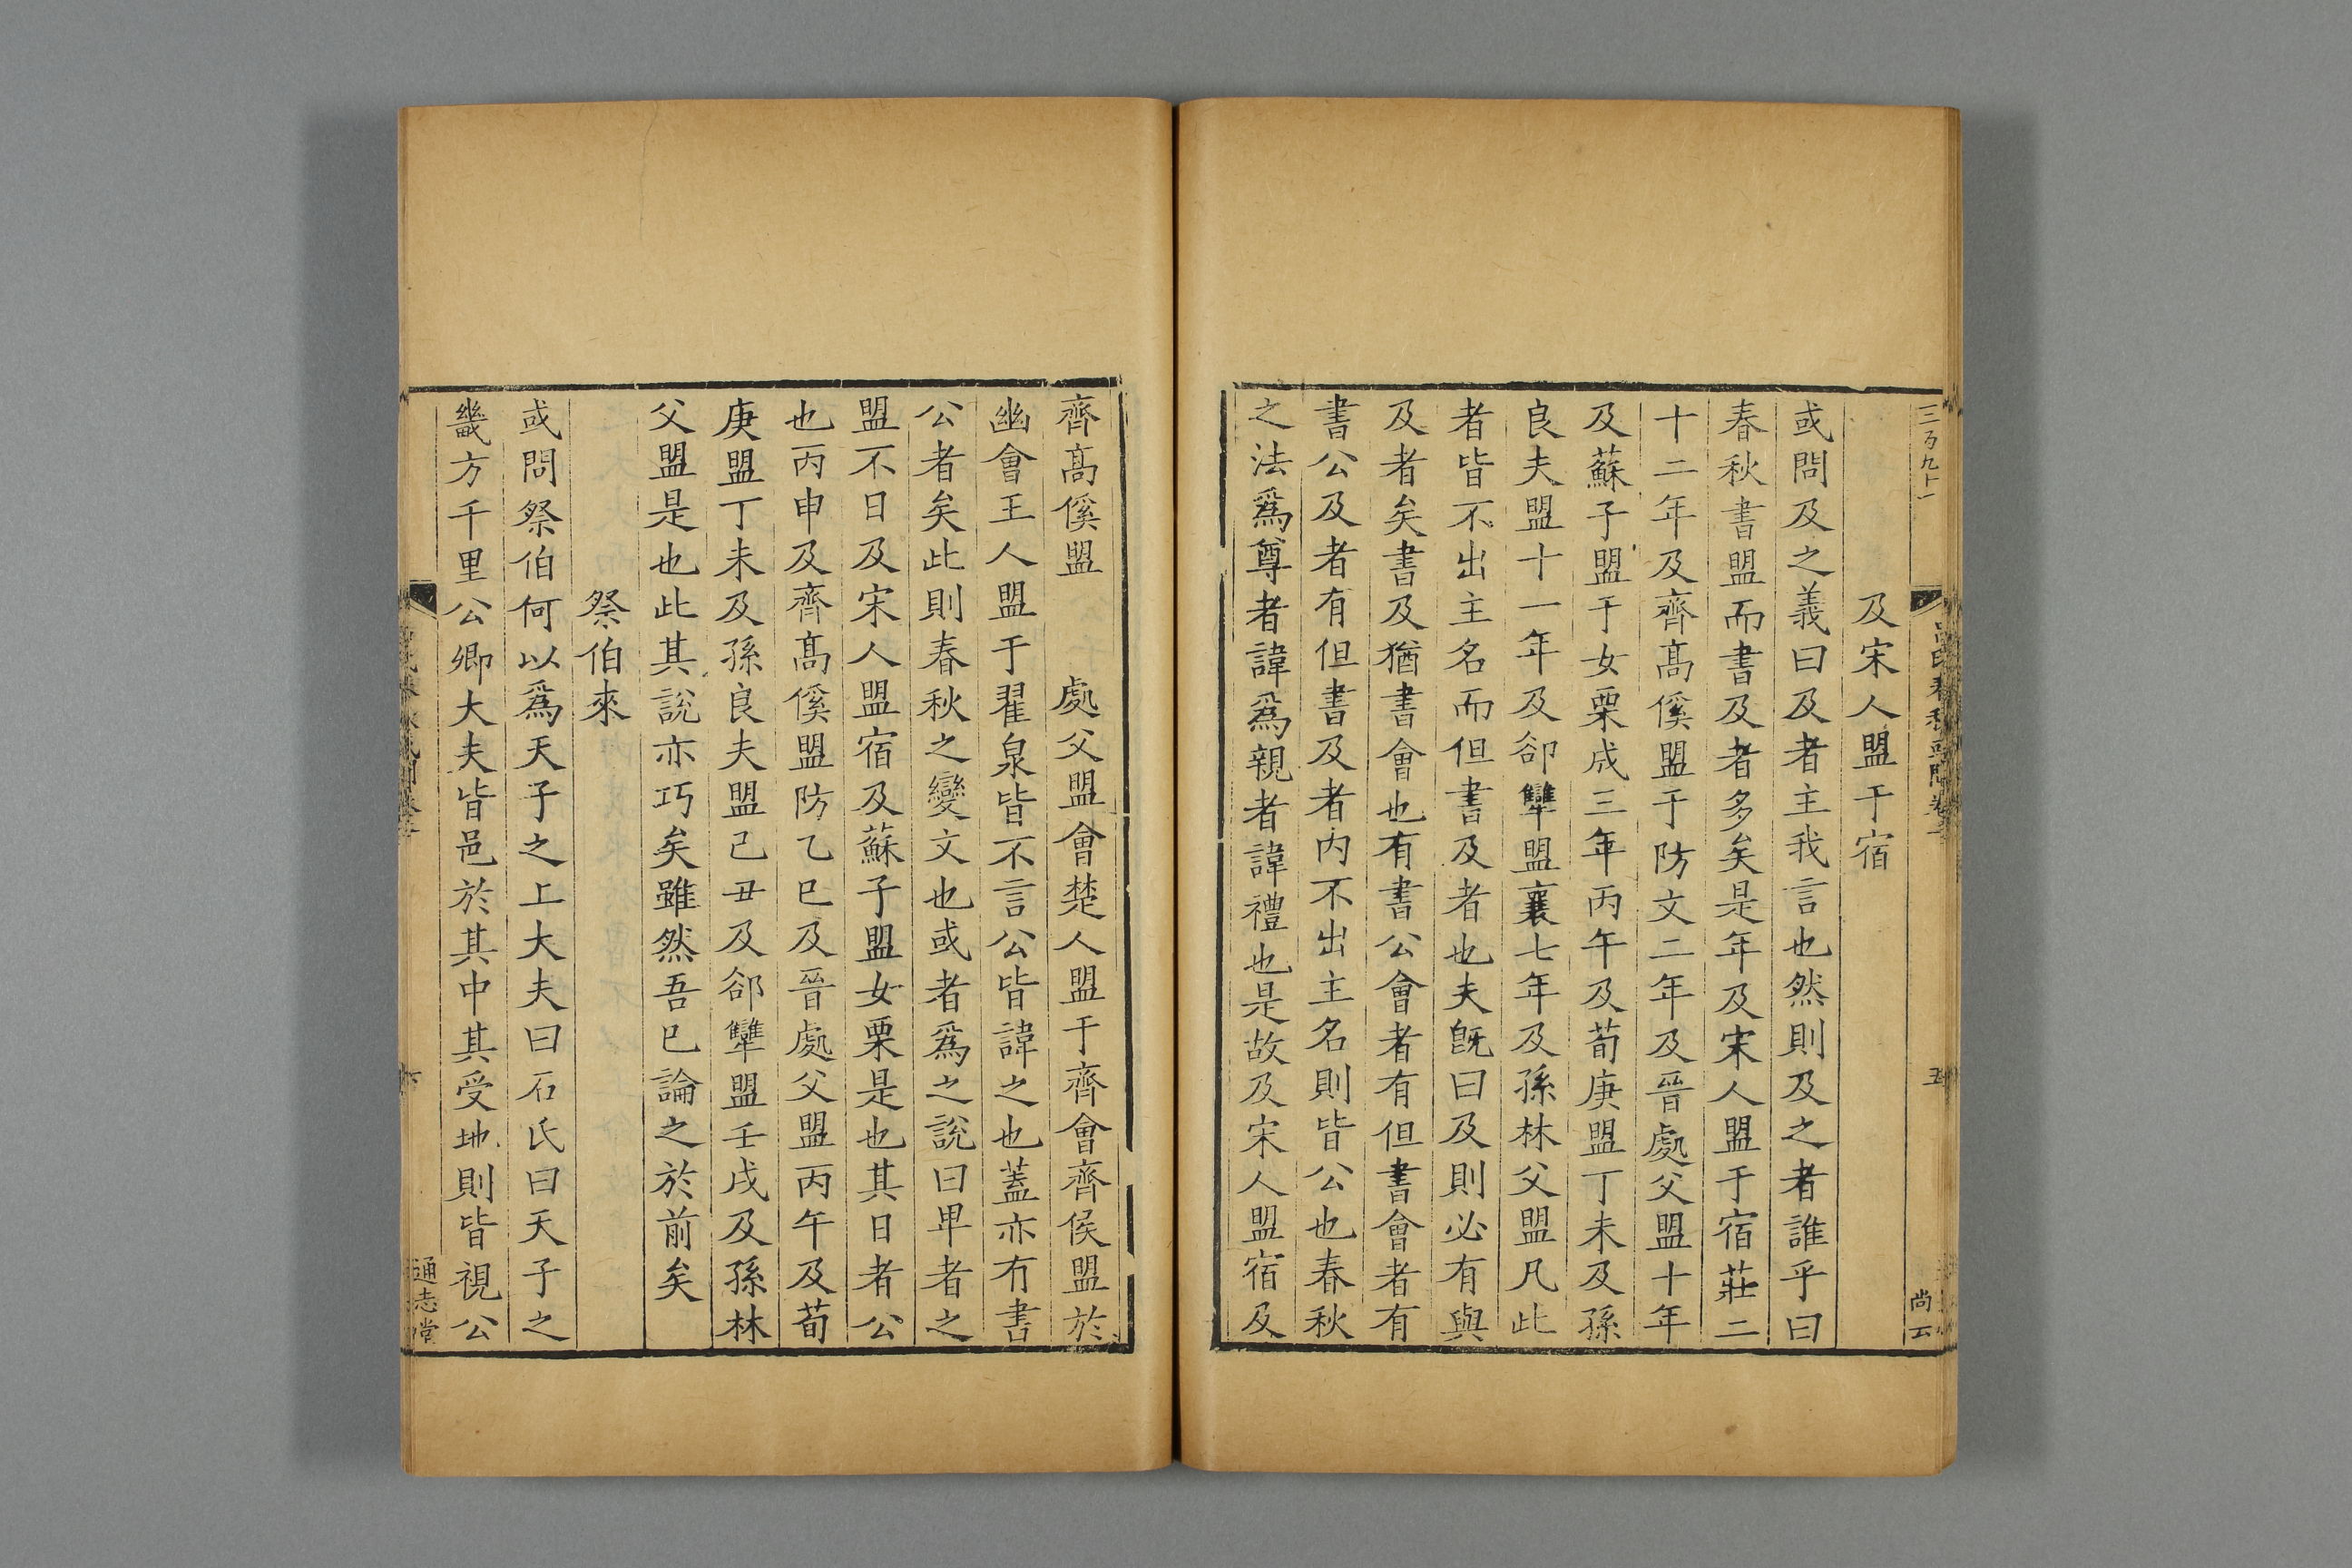 及宋人盟于宿
或問及之義曰及者主我言也然則及之者誰乎曰
春秋書盟而書及者多矣是年及宋人盟于宿莊二
十二年及齊髙傒盟于防文二年及晉處父盟十年
及蘇子盟于女栗成三年丙午及荀庚盟丁未及孫
良夫盟十一年及郤犫盟襄七年及孫林父盟凡此
者皆不出主名而但書及者也夫旣曰及則必有與
及者矣書及猶書會也有書公會者有但書會者有
書公及者有但書及者內不出主名則皆公也春秋
之法爲尊者諱爲親者諱禮也是故及宋人盟宿及
尚
齊髙傒盟　　處父盟會楚人盟于齊會齊侯盟於
幽會王人盟于翟泉皆不言公皆諱之也蓋亦冇書
公者矣此則春秋之變文也或者爲之說曰卑者之
盟不日及宋人盟宿及蘇子盟女栗是也其日者公
也丙申及齊髙傒盟防乙巳及晉處父盟丙午及荀
庚盟丁未及孫良夫盟己丑及郤犫盟壬戌及孫林
父盟是也此其說亦巧矣雖然吾已論之於前矣
祭伯來
或問祭伯何以爲天子之上大夫曰石氏曰天子之
畿方千里公卿大夫皆邑於其中其受地則皆視公
通志堂